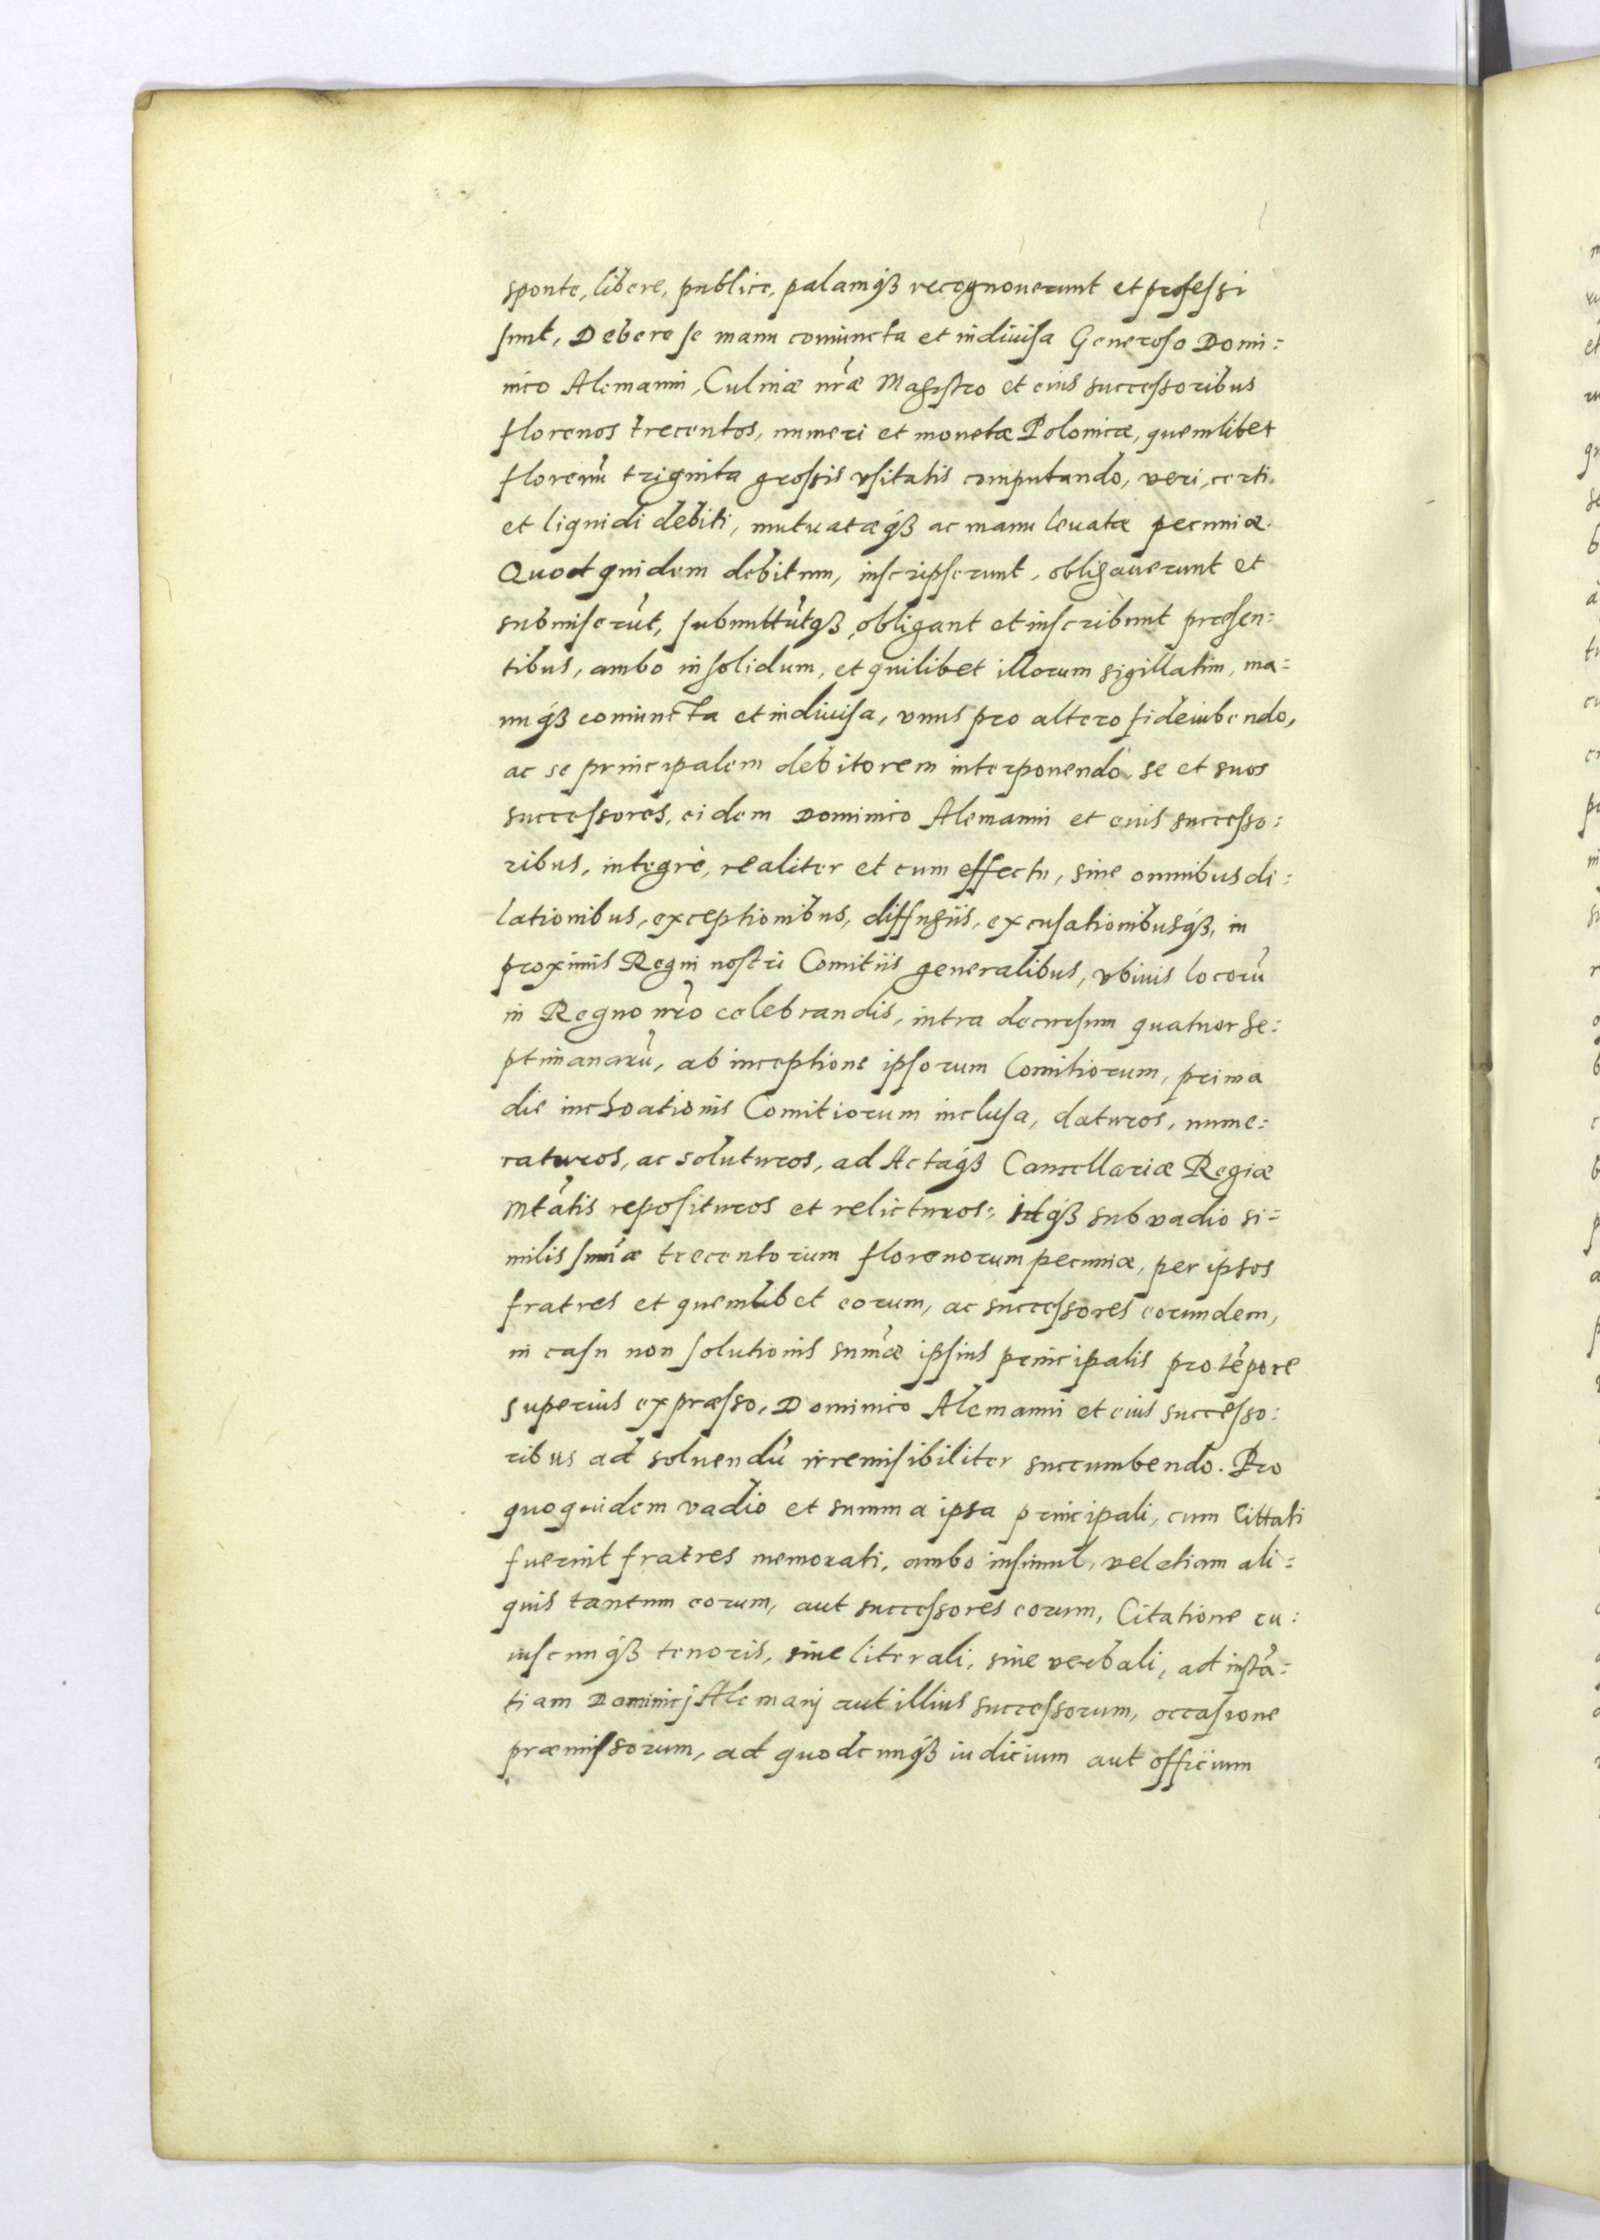 sponte, libere, publice, palamq́ȝ recognouerunt et professi
sunt, Debere se manu coniuncta et indiuisa Generoso Domi=
nico Alemanni, Culinæ nr̃æ Magistro et eius successoribus
florenos trecentos, numeri et monetæ Polonicæ, quemlibet
florenũ triginta grossis vsitatis computando, veri, certi
et liquidi debiti, mutuatæq́ȝ ac manu leuatæ pecuniæ.
Quod quidem debitum, inscripserunt, obligauerunt et
submiserũt, submittũtqȝ, obligant et inscribunt præsen=
tibus, ambo in solidum, et quilibet illorum sigillatim, ma=
nuq́ȝ coniuncta et indiuisa, vnus pro altero fideiubendo,
ac se principalem debitorem interponendo, se et suos
successores, eidem Dominico Alemanni et eius successo=
ribus, integrè, realiter et cum effectu, sine omnibus di=
lationibus, exceptionibus, diffugiis, excusationibusq́ȝ, in
proximis Regni nostri Comitiis generalibus, vbiuis locorũ
in Regno nr̃o celebrandis, intra decursum quatuor se=
ptimanarũ, ab inceptione ipsorum Comitiorum, prima
die inchoationis Comitiorum inclusa, daturos, nume=
raturos, ac soluturos, ad Actaq́ȝ Cancellariæ Regiæ
Mtãtis reposituros et relicturos: idq́ȝ sub vadio si=
milis sum̃æ trecentorum florenorum pecuniæ, per ipsos
fratres et quemlibet eorum, ac successores eorundem,
in casu non solutionis sum̃æ ipsius principalis pro tẽpore
superius expræsso, Dominico Alemanni et eius successo=
ribus ad soluendũ irremisibiliter succumbendo. Pro
quo quidem vadio et summa ipsa principali, cum Cittati
fuerint fratres memorati, ambo insimul, vel etiam ali=
quis tantum eorum, aut successores eorum, Citatione cu=
iuscunq́ȝ tenoris, siue literali, siue verbali, ad instã=
tiam Dominicj Alemanj aut illius successorum, occasione
præmissorum, ad quodcunq́ȝ iudicium aut officium